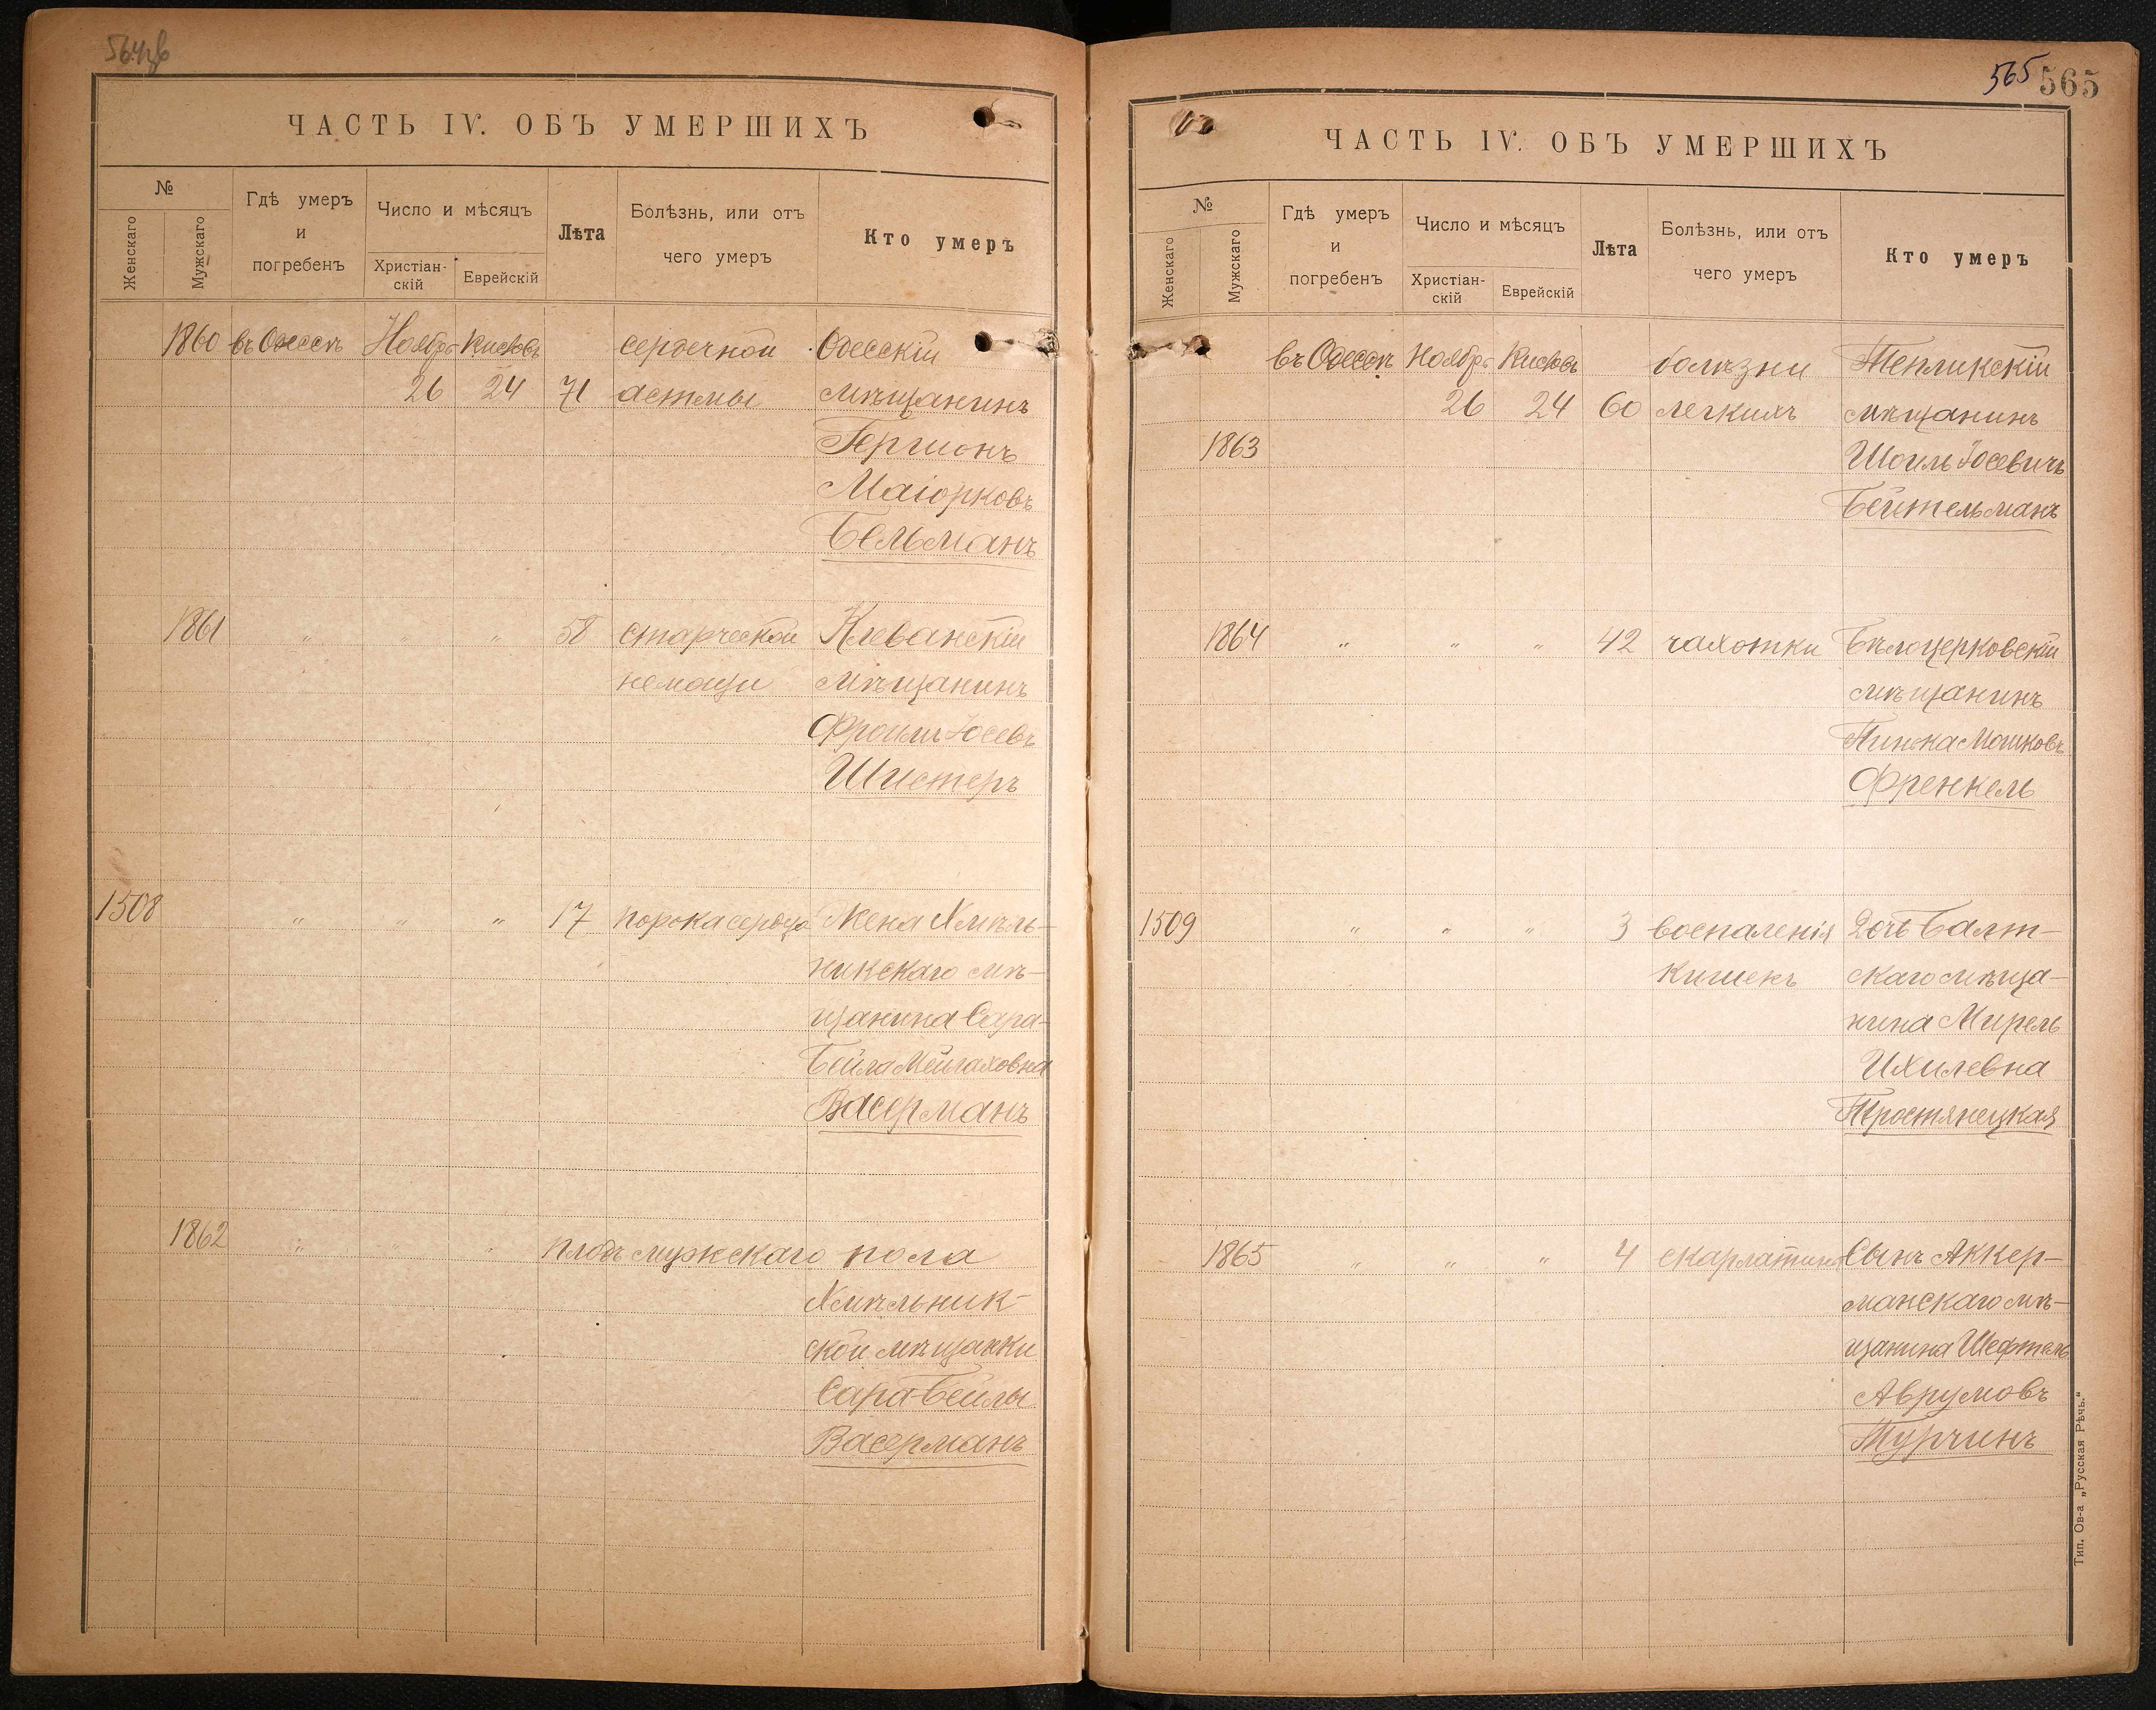 564об
ЧАСТЬ IV. ОБЪ УМЕРШИХЪ
№
Женскаго
Мужскаго
Гдѣ умеръ
и
погребенъ
Число и мѣсяцъ
Христіан-
скій
Еврейскій
Лѣта
Болѣзнь, или отъ
чего умеръ
Кто умеръ
1860 въ Одессѣ Ноябрь Кислевъ сердечной Одесскій
26 24 71 астмы мѣщанинъ
Гершонъ
Маіорковъ
Бельманъ
1861 " " " 58 старческой Клеванскій
немощи мѣщанинъ
Фроимъ Іосевъ
Шистеръ
1508 " " " 17 порока сердца Жена Хмѣль-
никскаго мѣ-
щанина Сара-
Бейла Мейлаховна
Васерманъ
1862 " " " плодъ мужескаго пола
Хмѣльник-
ской мѣщанки
Сара-Бейлы
Васерманъ
565 565
ЧАСТЬ IV. ОБЪ УМЕРШИХЪ
№
Женскаго
Мужскаго
Гдѣ умеръ
и
погребенъ
Число и мѣсяцъ
Христіан-
скій
Еврейскій
Лѣта
Болѣзнь, или отъ
чего умеръ
Кто умеръ
въ Одессѣ Ноябрь Кислевъ болѣзни Тепликскій
26 24 60 легкихъ мѣщанинъ
1863 Шоиль Іосевичъ
Бейтельманъ
1864 " " " 42 чахотки Бѣлоцерковскій
мѣщанинъ
Пинька Мошковъ
Френкель
1509 " " " 3 воспаленія Дочь Балт-
кишекъ скаго мѣща-
нина Мирель
Ихилевна
Тростянецкая
1865 " " " 4 скарлатины Сынъ Аккер-
манскаго мѣ-
щанина Шефтель
Аврумовъ
Турчинъ
Тип. Ов-а „Русская Рѣчь.“